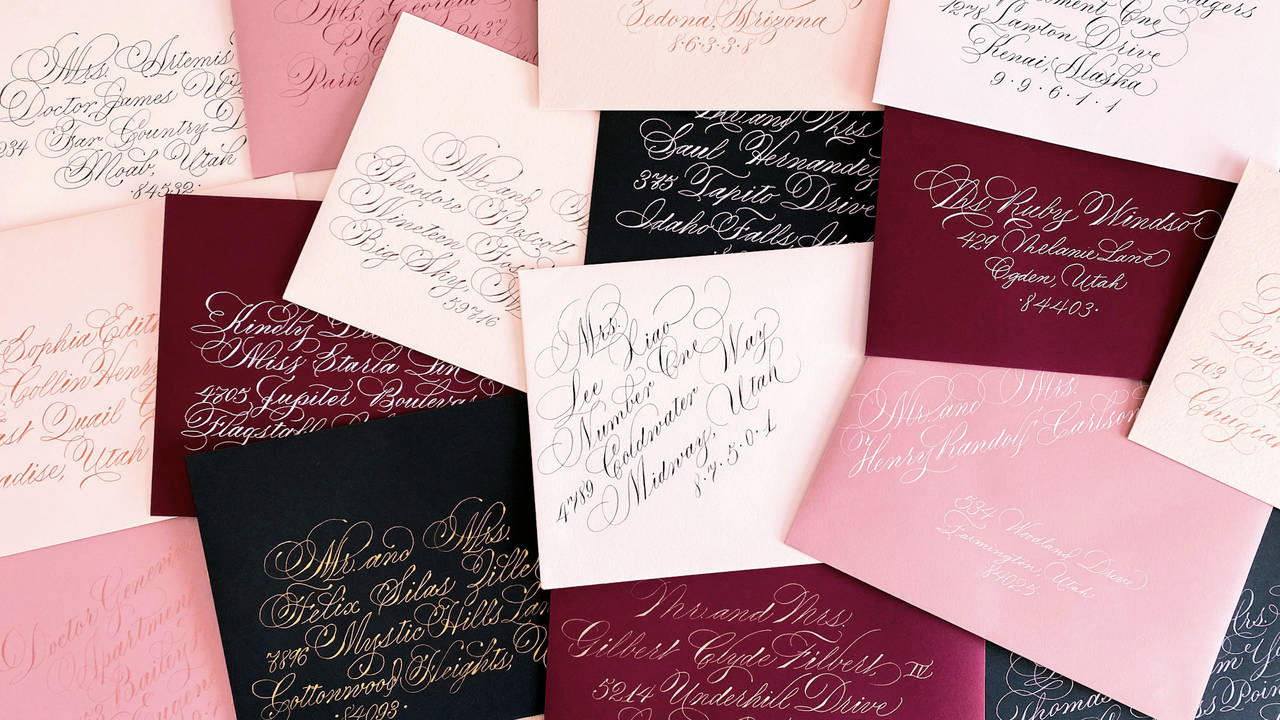 Mrs. Artemis
Doctor James
Far Country
Moab, Utah
·84532·
Ms. Georgia
Park
Sedona, Arizona
8·6·3·3·8
1278 Lawton Drive
Kenai, Alaska
9·9·6·1·1
Mr. and
Theodore Proscott
Nineteen
Big Sky,
59716
Mr. and Mrs.
Saul Hernandez
375 Tapito Drive
Idaho Falls,
Mrs. Ruby Windsor
429 Melanie Lane
Ogden, Utah
·84403·
Sophia Edith
Collin Henry
Quail
Utah
Kindly
Miss Starla
4705 Jupiter Boulevar
Flagstaff
Mrs.
Lee Liao
Number One Way
4789 Coldwater
Midway, Utah
8·7·5·0·1
103
Chugia
Mr. and Mrs.
Henry Randolf Carlson
534 Woodland Drive
Farmington, Utah
84025
Doctor
Apartment
Mr. and Mrs.
Felix Silas Zille
7896 Mystic Hills Lan
Cottonwood Heights, U
·84093·
Mr. and Mrs.
Gilbert Clyde Filbert, III
5214 Underhill Drive
Thomas
Poin